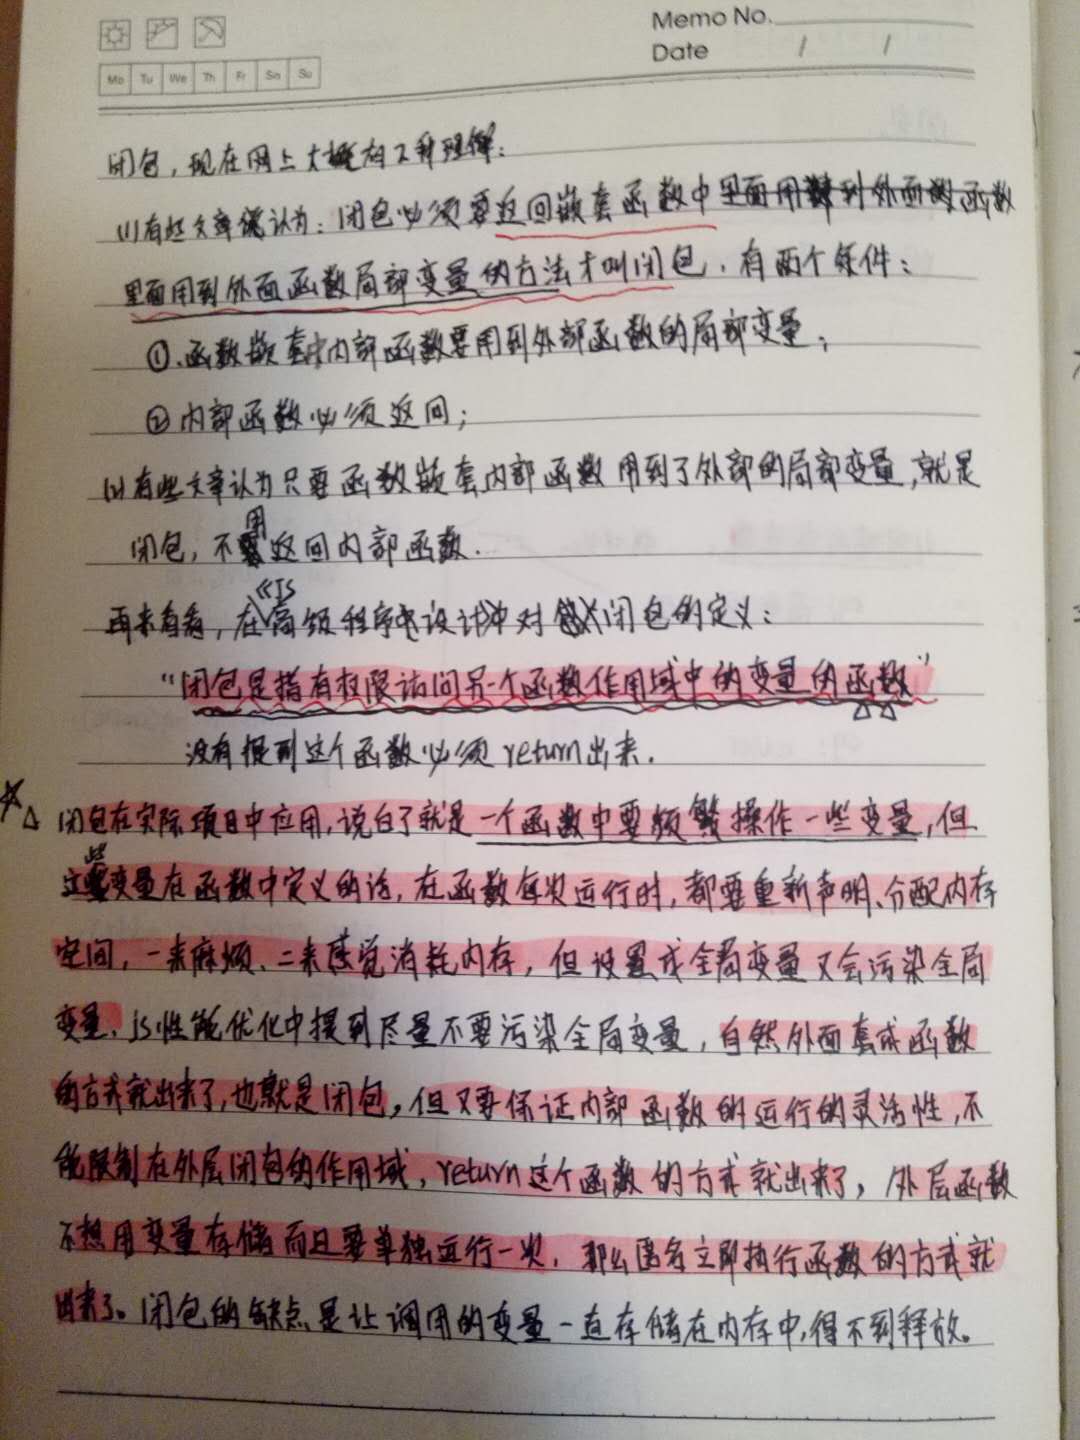 Memo No.
Date / /
Mo Tu We Th Fr Sa Su
闭包，现在网上大概有2种理解：
(1)有些文章认为：闭包必须要返回嵌套函数中里面用到外面函数
里面用到外面函数局部变量的方法才叫闭包，有两个条件：
①.函数嵌套中内部函数要用到外部函数的局部变量；
②内部函数必须返回；
(2)有些文章认为只要函数嵌套内部函数用到了外部的局部变量，就是
闭包，不用返回内部函数.
再来看看，在《JS高级程序设计》中对闭包的定义：
“闭包是指有权限访问另一个函数作用域中的变量的函数”
没有提到这个函数必须return出来.
闭包在实际项目中应用，说白了就是一个函数中要频繁操作一些变量，但
这些变量在函数中定义的话，在函数每次运行时，都要重新声明、分配内存
空间，一来麻烦、二来感觉消耗内存，但设置成全局变量又会污染全局
变量、js性能优化中提到尽量不要污染全局变量，自然外面套成函数
的方式就出来了，也就是闭包，但又要保证内部函数的运行的灵活性，不
能限制在外层闭包的作用域，return这个函数的方式就出来了，外层函数
不想用变量存储而且要单独运行一次，那么匿名立即执行函数的方式就
出来了。闭包的缺点是让调用的变量一直存储在内存中，得不到释放。